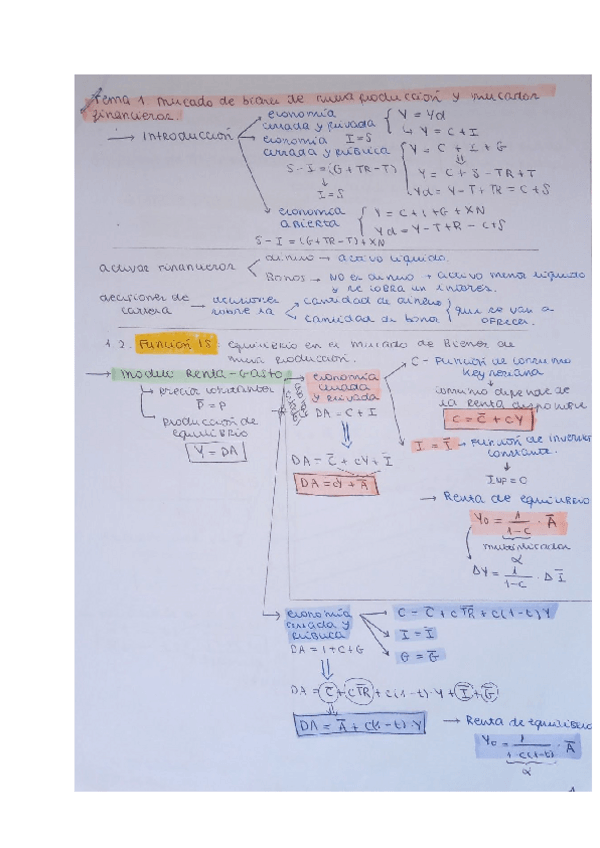 Tema 1. Mercado de bienes de nueva producción y mercados
financieros.
→ Introducción
economía
cerrada y privada
Y = Yd
↳ Y = C + I
I = S
economía
cerrada y pública
Y = C + I + G
S - I = (G + TR - T)
Y = C + S - TR + T
↓
I = S
Yd = Y - T + TR = C + S
economía
abierta
Y = C + I + G + XN
Yd = Y - T + R - C + S
S - I = (G + TR - T) + XN
activos financieros
dinero → activo líquido.
Bonos → NO es dinero → activo menos líquido
y se cobra un interés.
decisiones de
cartera
→ decisiones
sobre la
cantidad de dinero
cantidad de bonos
que se van a
ofrecer.
1.2. Función IS: equilibrio en el mercado de Bienes de
nueva producción.
→ modelo Renta-Gasto
↳ precios constantes
P̄ = P
↳ producción de
equilibrio
Y = DA
economía
cerrada
y privada
DA = C + I
⇓
DA = C̄ + cY + Ī
DA = cY + Ā
C - Función de consumo
Keynesiana
↓
consumo depende de
la renta disponible
C = C̄ + cY
I = Ī → Función de inversión
constante.
↓
→ Renta de equilibrio
Yo = 1/1-c · Ā
multiplicador
α
ΔY = 1/1-c · ΔĪ
economía
cerrada y
pública
DA = I + C + G
C = C̄ + cTR̄ + c(1-t)Y
I = Ī
G = Ḡ
⇓
DA = C̄ + cTR̄ + c(1-t)·Y + Ī + Ḡ
DA = Ā + c(1-t)·Y
→ Renta de equilibrio
Yo = 1/1-c(1-t) · Ā
α